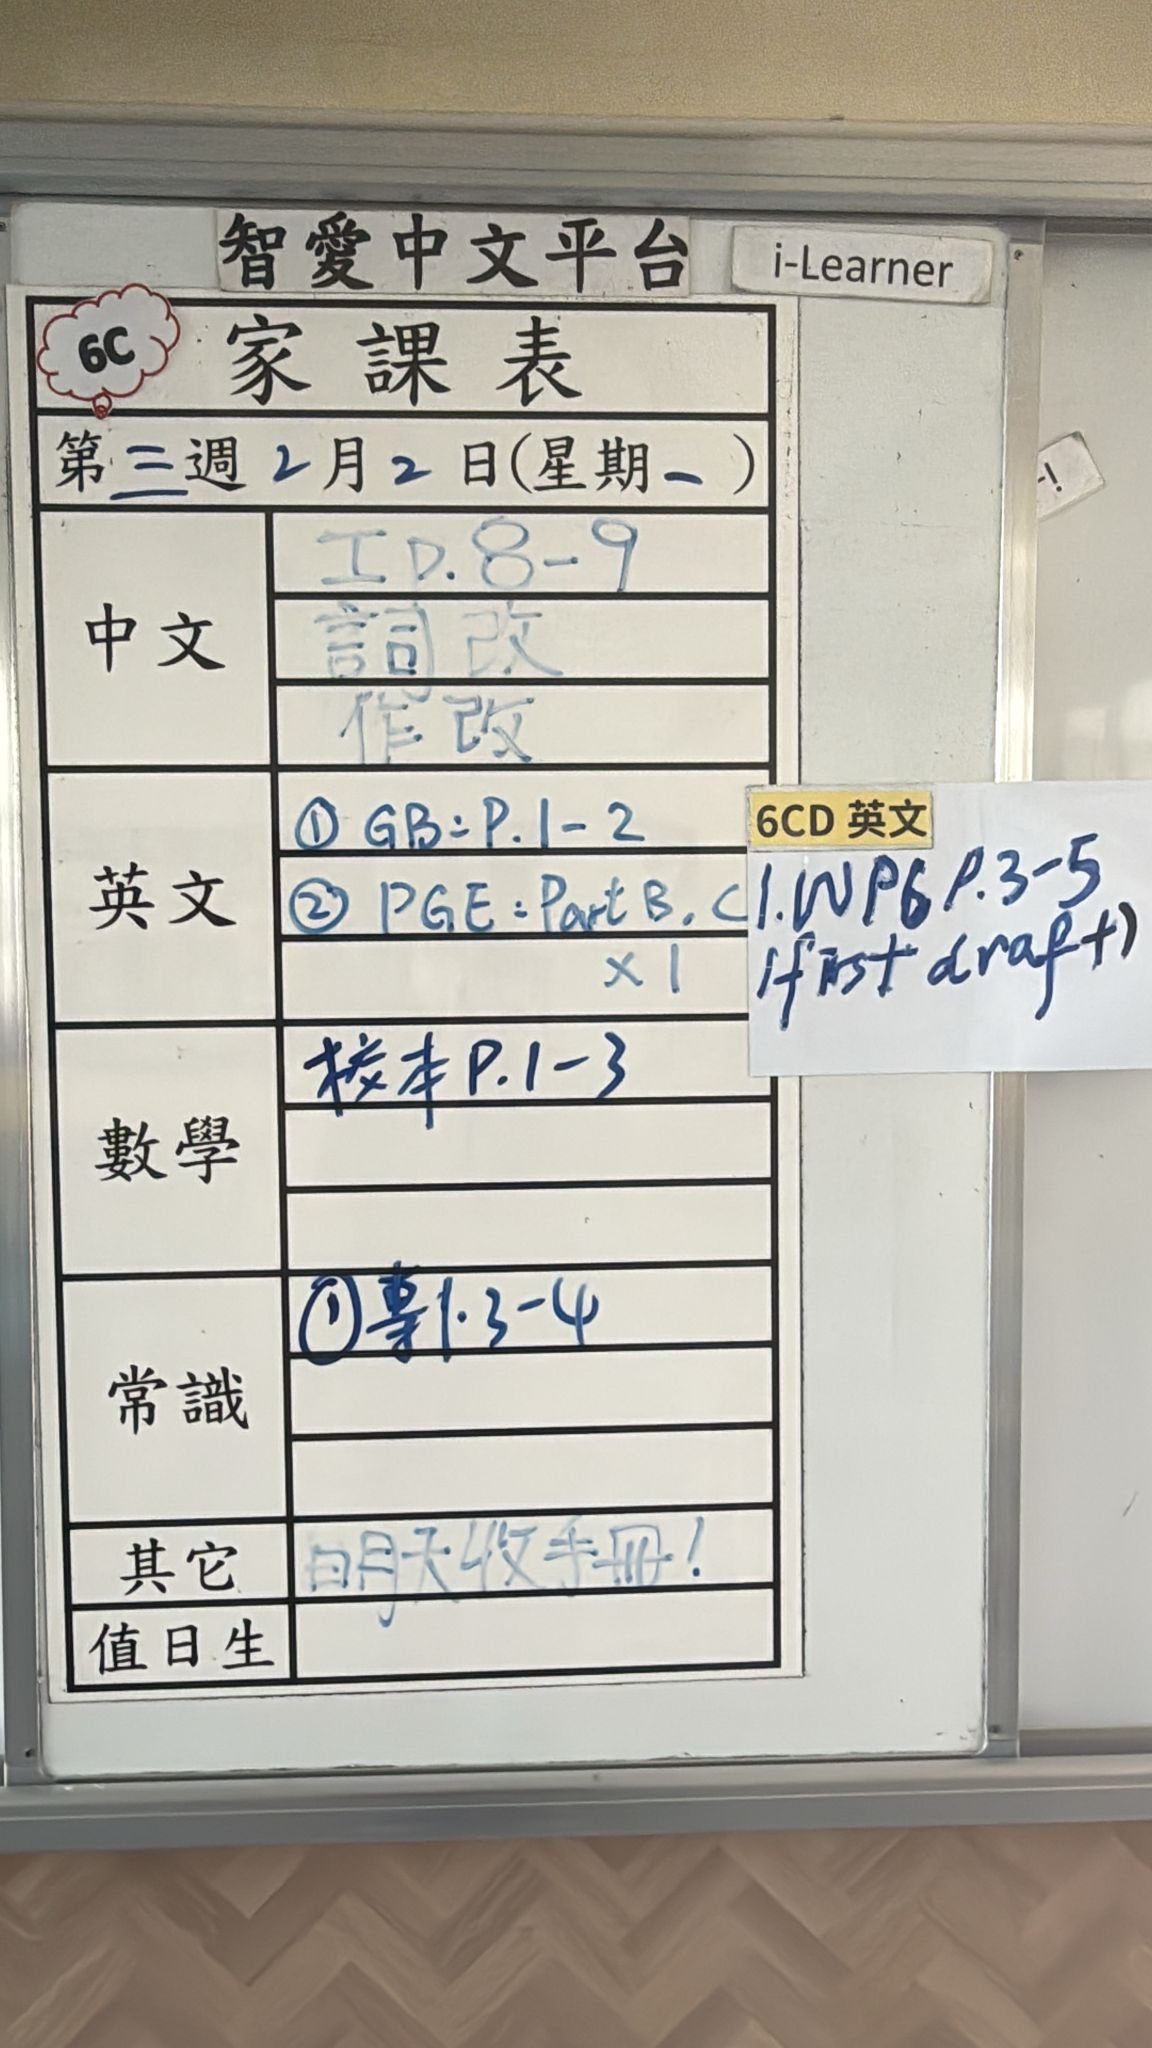 智愛中文平台 i-Learner
6C 家課表
第三週2月2日(星期一)
中文
工P.8-9
詞改
作改
英文
① GB:P.1-2
② PGE:Part B,C
x1
6CD 英文
1.WP6 P.3-5
(first draft)
數學
校本P.1-3
常識
①專P.3-4
其它
明天收手冊!
值日生
-!